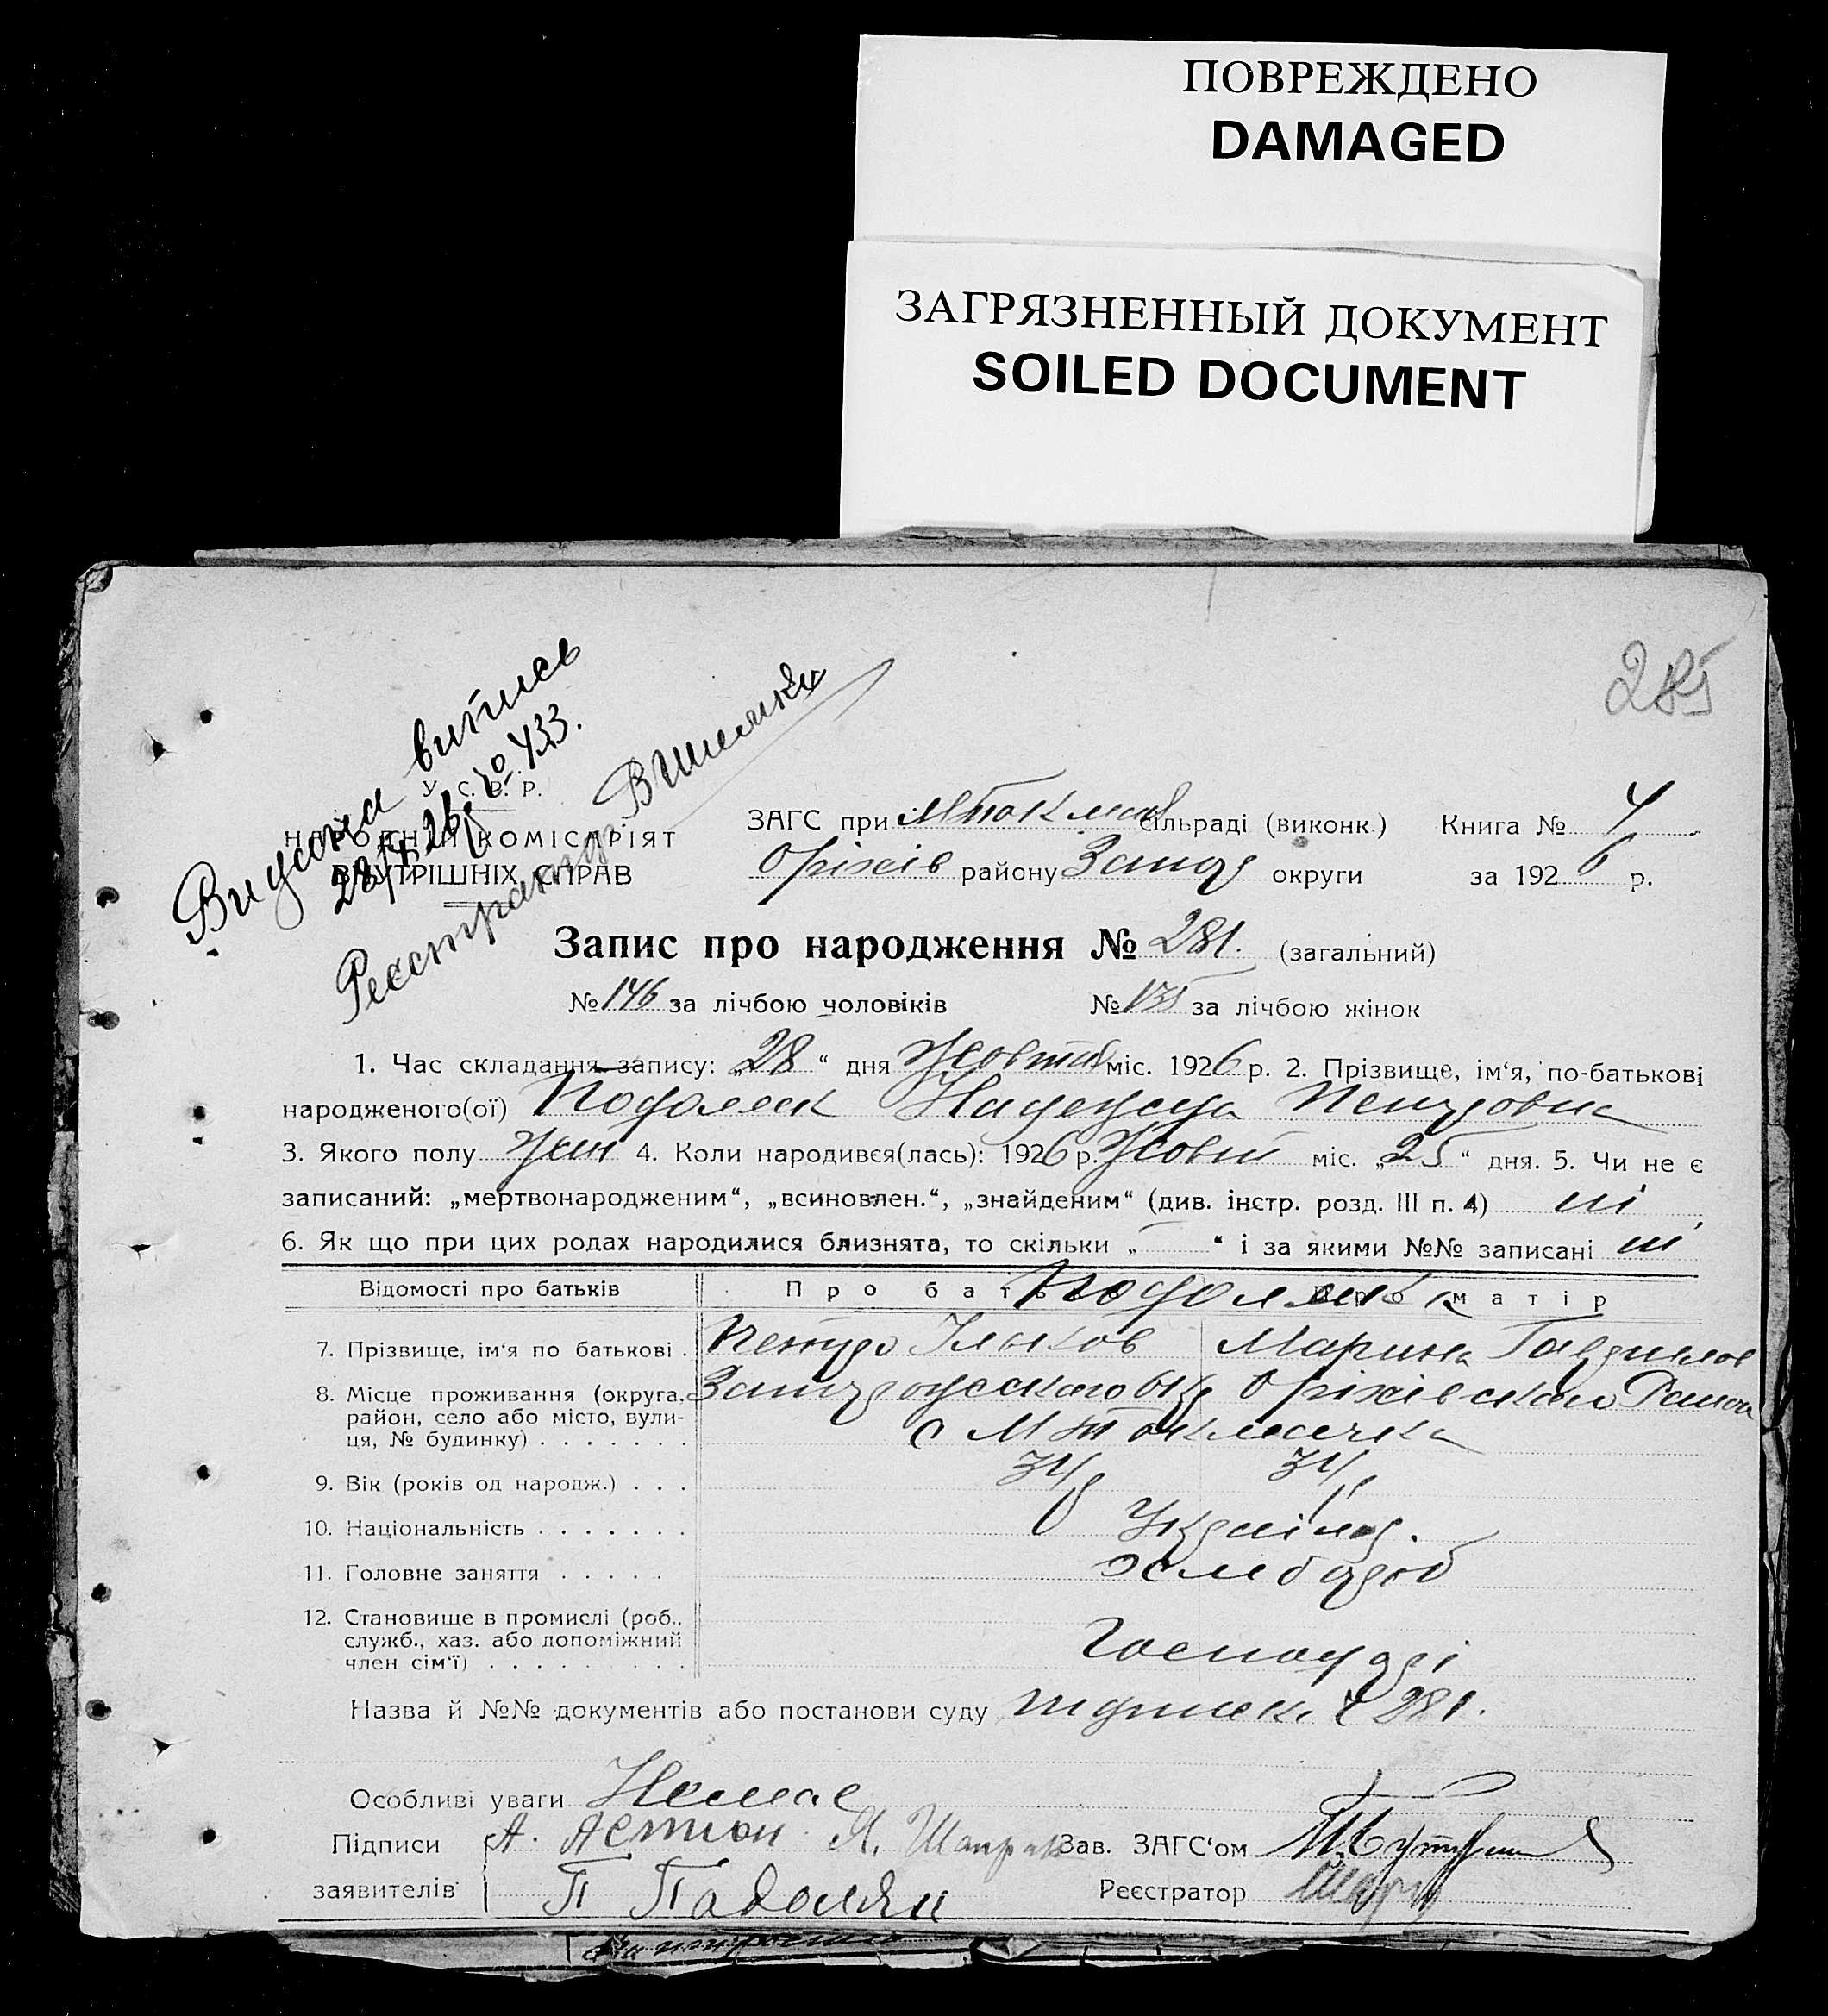 ПОВРЕЖДЕНО
DAMAGED
ЗАГРЯЗНЕННЫЙ ДОКУМЕНТ
SOILED DOCUMENT
285
Видана витись
28/X 26 р. № 433.
Реєстратор
У. С. Р. Р.
НАРОДНІЙ КОМІСАРІЯТ
ВНУТРІШНІХ СПРАВ
ЗАГС при М Токмач сільраді (виконк.) Книга № 4
Оріхів району Запор округи за 1926 р.
Запис про народження № 281. (загальний)
№ 146 за лічбою чоловіків № 135 за лічбою жінок
1. Час складання запису: „28“ дня Жовтня міс. 1926 р. 2. Прізвище, ім‘я, по-батькові
народженого(ої) Подоляк Надежда Петровна
3. Якого полу жін 4. Коли народився(лась): 1926 р. Жовт міс. „25“ дня. 5. Чи не є
записаний: „мертвонародженим“, „всиновлен.“, „знайденим“ (див. інстр. розд. III п. 4) ні
6. Як що при цих родах народилися близнята, то скільки „ “ і за якими №№ записані ні
Відомості про батьків Про батька Про матір
Подоляк
7. Прізвище, ім‘я по батькові . Петро Ільков Марина Гаврилов
8. Місце проживання (округа, Запорожского Окр Оріхівскаго Район
район, село або місто, вули-
ця, № будинку) . . . . . . . с М Токмачка
9. Вік (років од народж.) . . . 34 р 34 р
10. Національність . . . . . . . Україн.
11. Головне заняття . . . . . хлібороб
12. Становище в промислі (роб.,
служб., хаз. або допоміжний
член сім‘ї) . . . . . . . . . Господарі
Назва й №№ документів або постанови суду 281.
Особливі уваги Немає
Підписи А. П. Шапран Зав. ЗАГС‘ом
заявителів П Падоляк Реєстратор